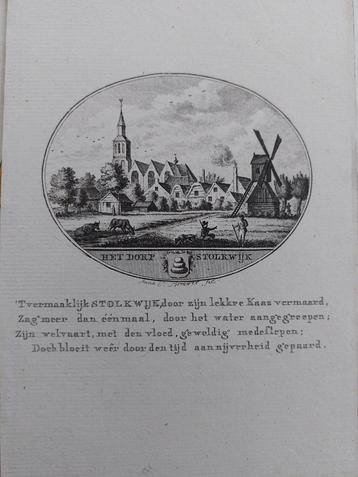 HET DORP STOLKWIJK
'T vermaaklijk STOLKWIJK, door zijn lekkre Kaas vermaard,
Zag meer dan éénmaal, door het water aangegreepen;
Zijn welvaart, met den vloed, geweldig medeslepen;
Doch bloeit weêr door den tijd aan nijverheid gepaard.